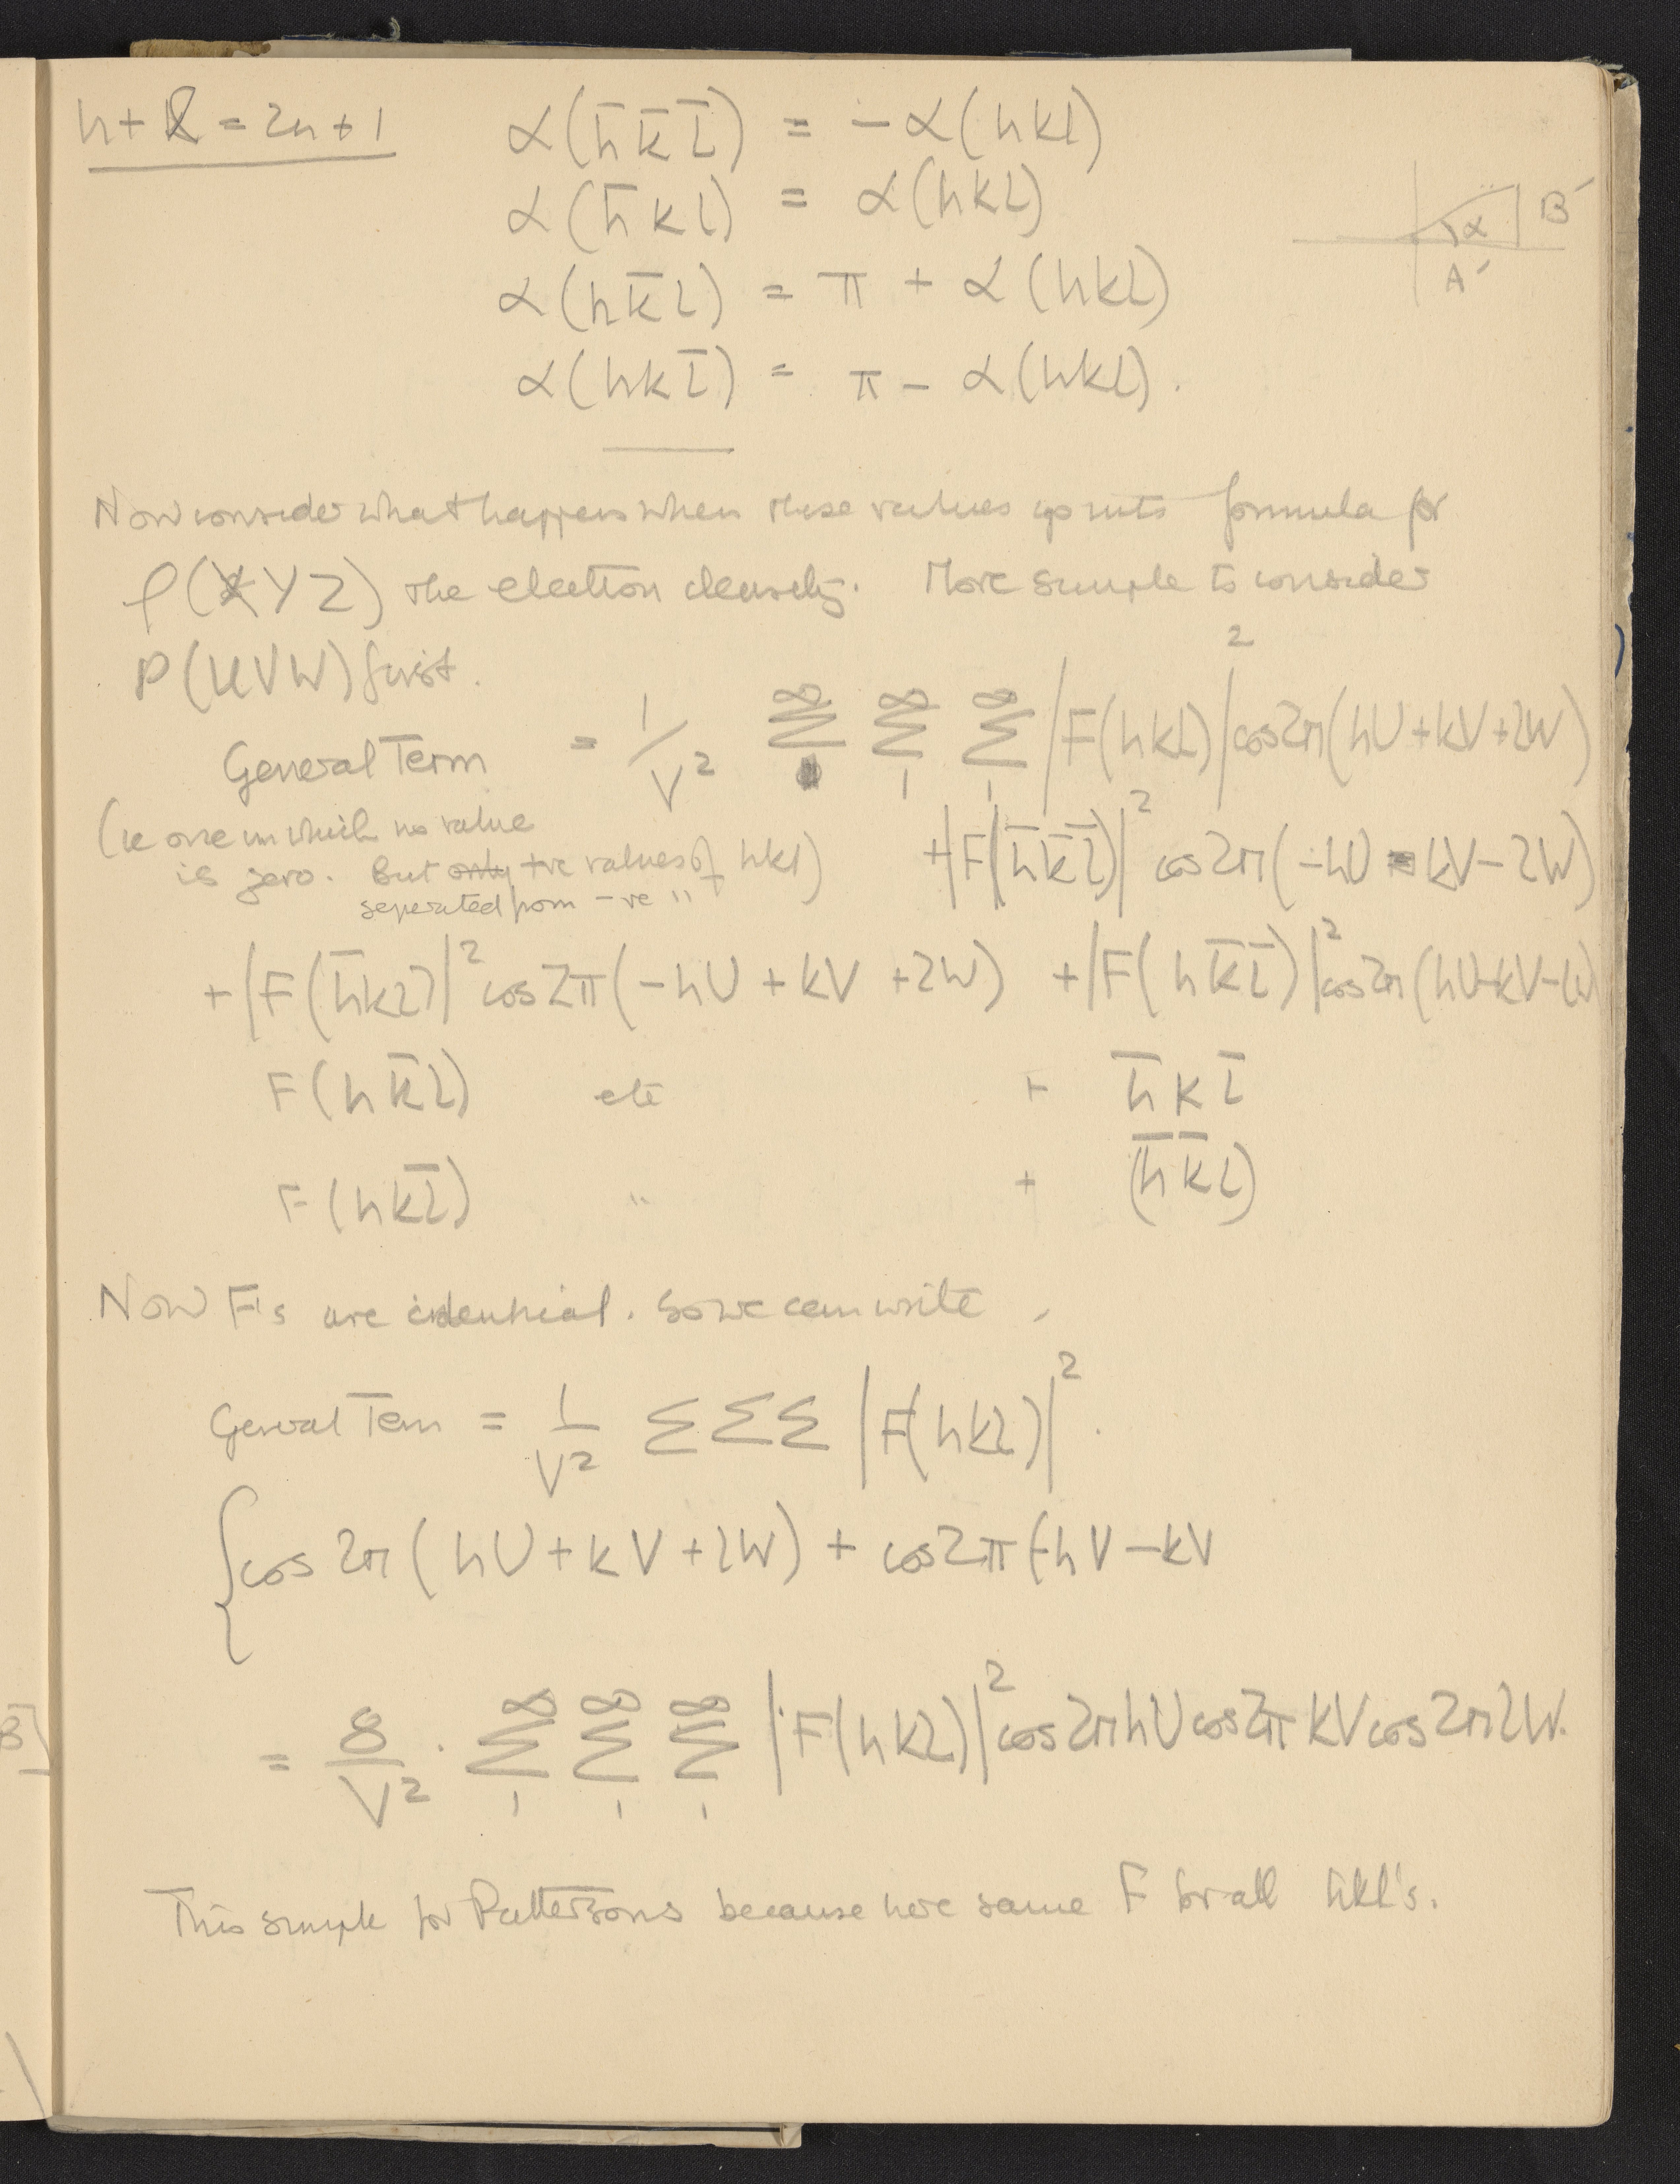 h + k = 2n + 1
α(h̄ k̄ l̄) = − α(hkl)
α(h̄ k l) = α(hkl)
α(h k̄ l) = π + α(hkl)
α(h k l̄) = π − α(hkl).
B′
α
A′
Now consider what happens when these values go into formula for
ρ(XYZ) the electron density. More simple to consider
P(UVW) first.
General Term = 1/V² ∞Σ ∞Σ1 ∞Σ1 |F(hkl)|² cos2π(hU+kV+lW)
(ie one in which no value
is zero. But only +ve values of hkl)
separated from −ve "
+|F(h̄k̄l̄)|² cos2π(−hU − kV − lW)
+|F(h̄kl)|² cos2π(−hU + kV + lW) + |F(hk̄l̄)|² cos2π(hU−kV−lW)
F(hk̄l) etc + h̄ k l̄
F(hkl̄) " + (h̄k̄l)
Now F's are identical. So we can write
General Term = 1/V² ΣΣΣ |F(hkl)|².
{cos 2π(hU + kV + lW) + cos2π(−hV − kV
= 8/V² . ∞Σ1 ∞Σ1 ∞Σ1 |F(hkl)|² cos2πhU cos2πkV cos2πlW.
This simple for Pattersons because here same F for all hkl's.
B]